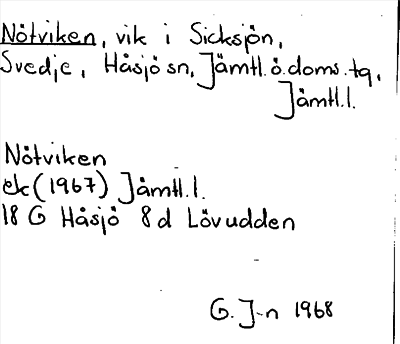 Nötviken, vik i Sicksjön,
Svedje, Håsjö sn, Jämtl.ö.doms.tg,
Jämtl.l.
Nötviken
ek (1967) Jämtl.l.
18 G Håsjö 8 d Lövudden
G. J-n 1968